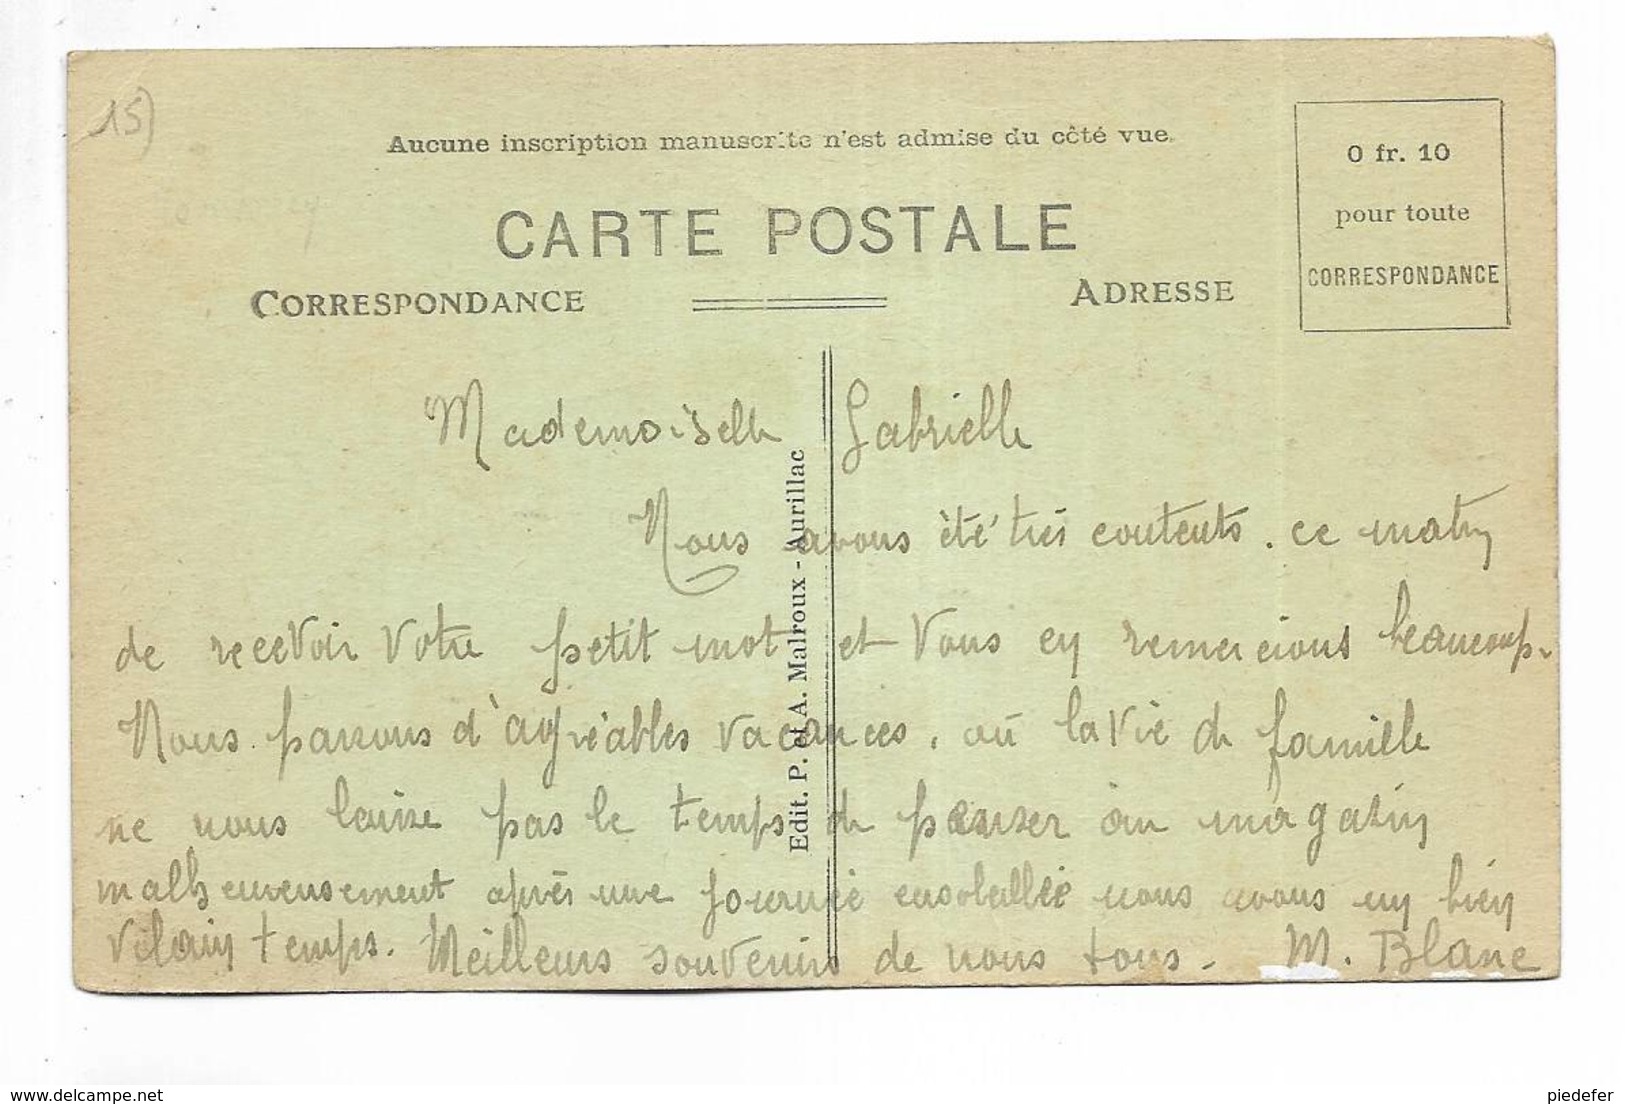 15)
Aucune inscription manuscrite n'est admise du côté vue.
CARTE POSTALE
CORRESPONDANCE
ADRESSE
0 fr. 10
pour toute
CORRESPONDANCE
Edit. P. et A. Malroux - Aurillac
Mademoiselle Gabrielle
Nous avons été très contents. ce matin
de recevoir votre petit mot et vous en remercions beaucoup.
Nous passons d'agréables vacances, où la vie de famille
ne nous laisse pas le temps de penser au magasin
malheureusement après une journée ensoleillée nous avons un bien
vilain temps. Meilleurs souvenirs de nous tous. M. Blanc
piedefer
www.delcampe.net